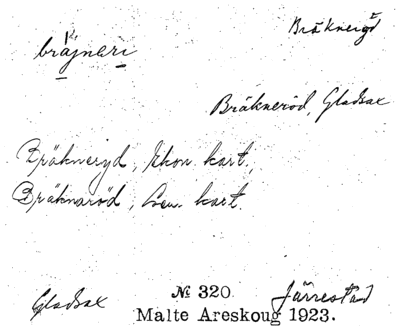 Bräkneryd
bräjneri
k
Bräkneröd Gladsax
Bräkneryd, Ekon. kart.,
Bräknaröd, Gen. kart.
Gladsax
№ 320
Järrestad
Malte Areskoug 1923.